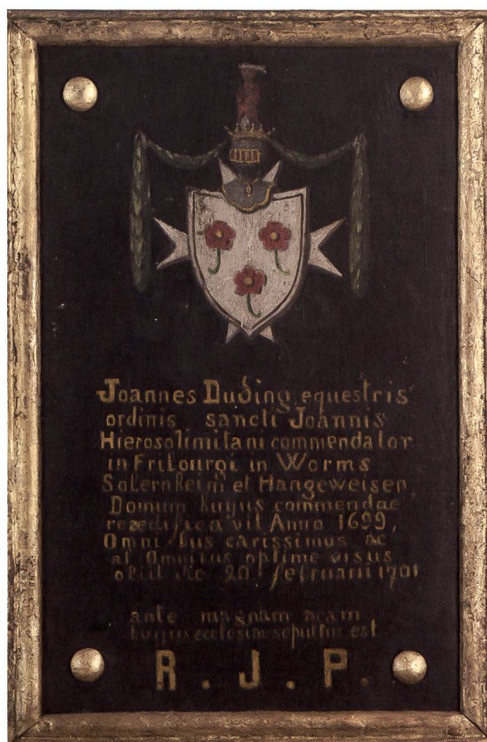 Joannes Duding equestris
ordinis sancti Joannis
Hierosolimitani commendator
in Fribourgi in Worms
Sobernheim et Hangeweiser
Domum hujus commendae
reaedificavit Anno 1699,
Omnibus carissimus ac
ab Omnibus optime visus
obiit die 20! februarii 1701
ante magnam aram
hujus ecclesiae sepultus est
R. J. P.